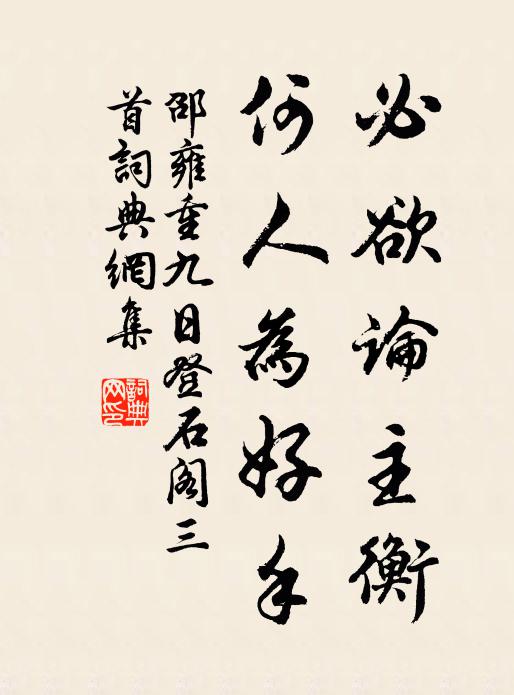 必欲論主衡
何人為好手
邵雍重九日登石閣三
首詞典網集
詞典
網印